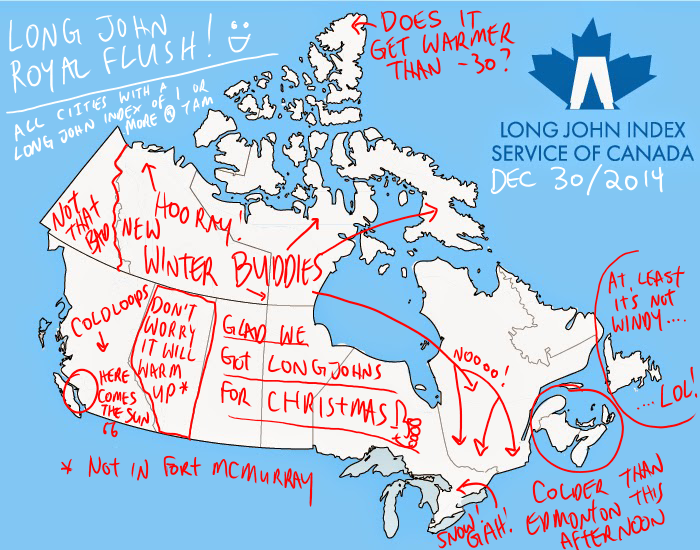 LONG JOHN
ROYAL FLUSH!
ALL CIITIES WITH A
LONG JOHN INDEX OF 1 OR
MORE @ 7AM
DOES IT
GET WARMER
THAN -30?
LONG JOHN INDEX
SERVICE OF CANADA
DEC 30/2014
NOT
THAT
BAD
HOORAY!
NEW
WINTER BUDDIES
AT LEAST
IT'S NOT
WINDY....
.... LOL!
COLDLOOPS
HERE
COMES
THE SUN
DON'T
WORRY
IT WILL
WARM
UP*
GLAD WE
GOT LONGJOHNS
FOR CHRISTMAS
NOOOO!
* NOT IN FORT MCMURRAY
SNOW!
GAH!
COLDER THAN
EDMONTON THIS
AFTERNOON